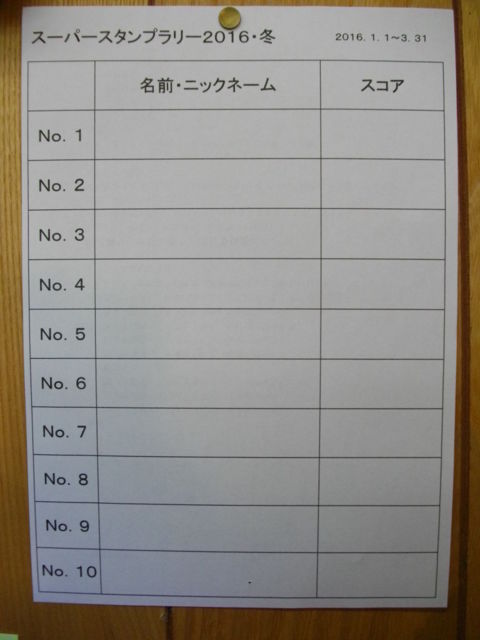 スーパースタンプラリー2016・冬 2016. 1. 1～3. 31
名前・ニックネーム スコア
No. 1
No. 2
No. 3
No. 4
No. 5
No. 6
No. 7
No. 8
No. 9
No. 10